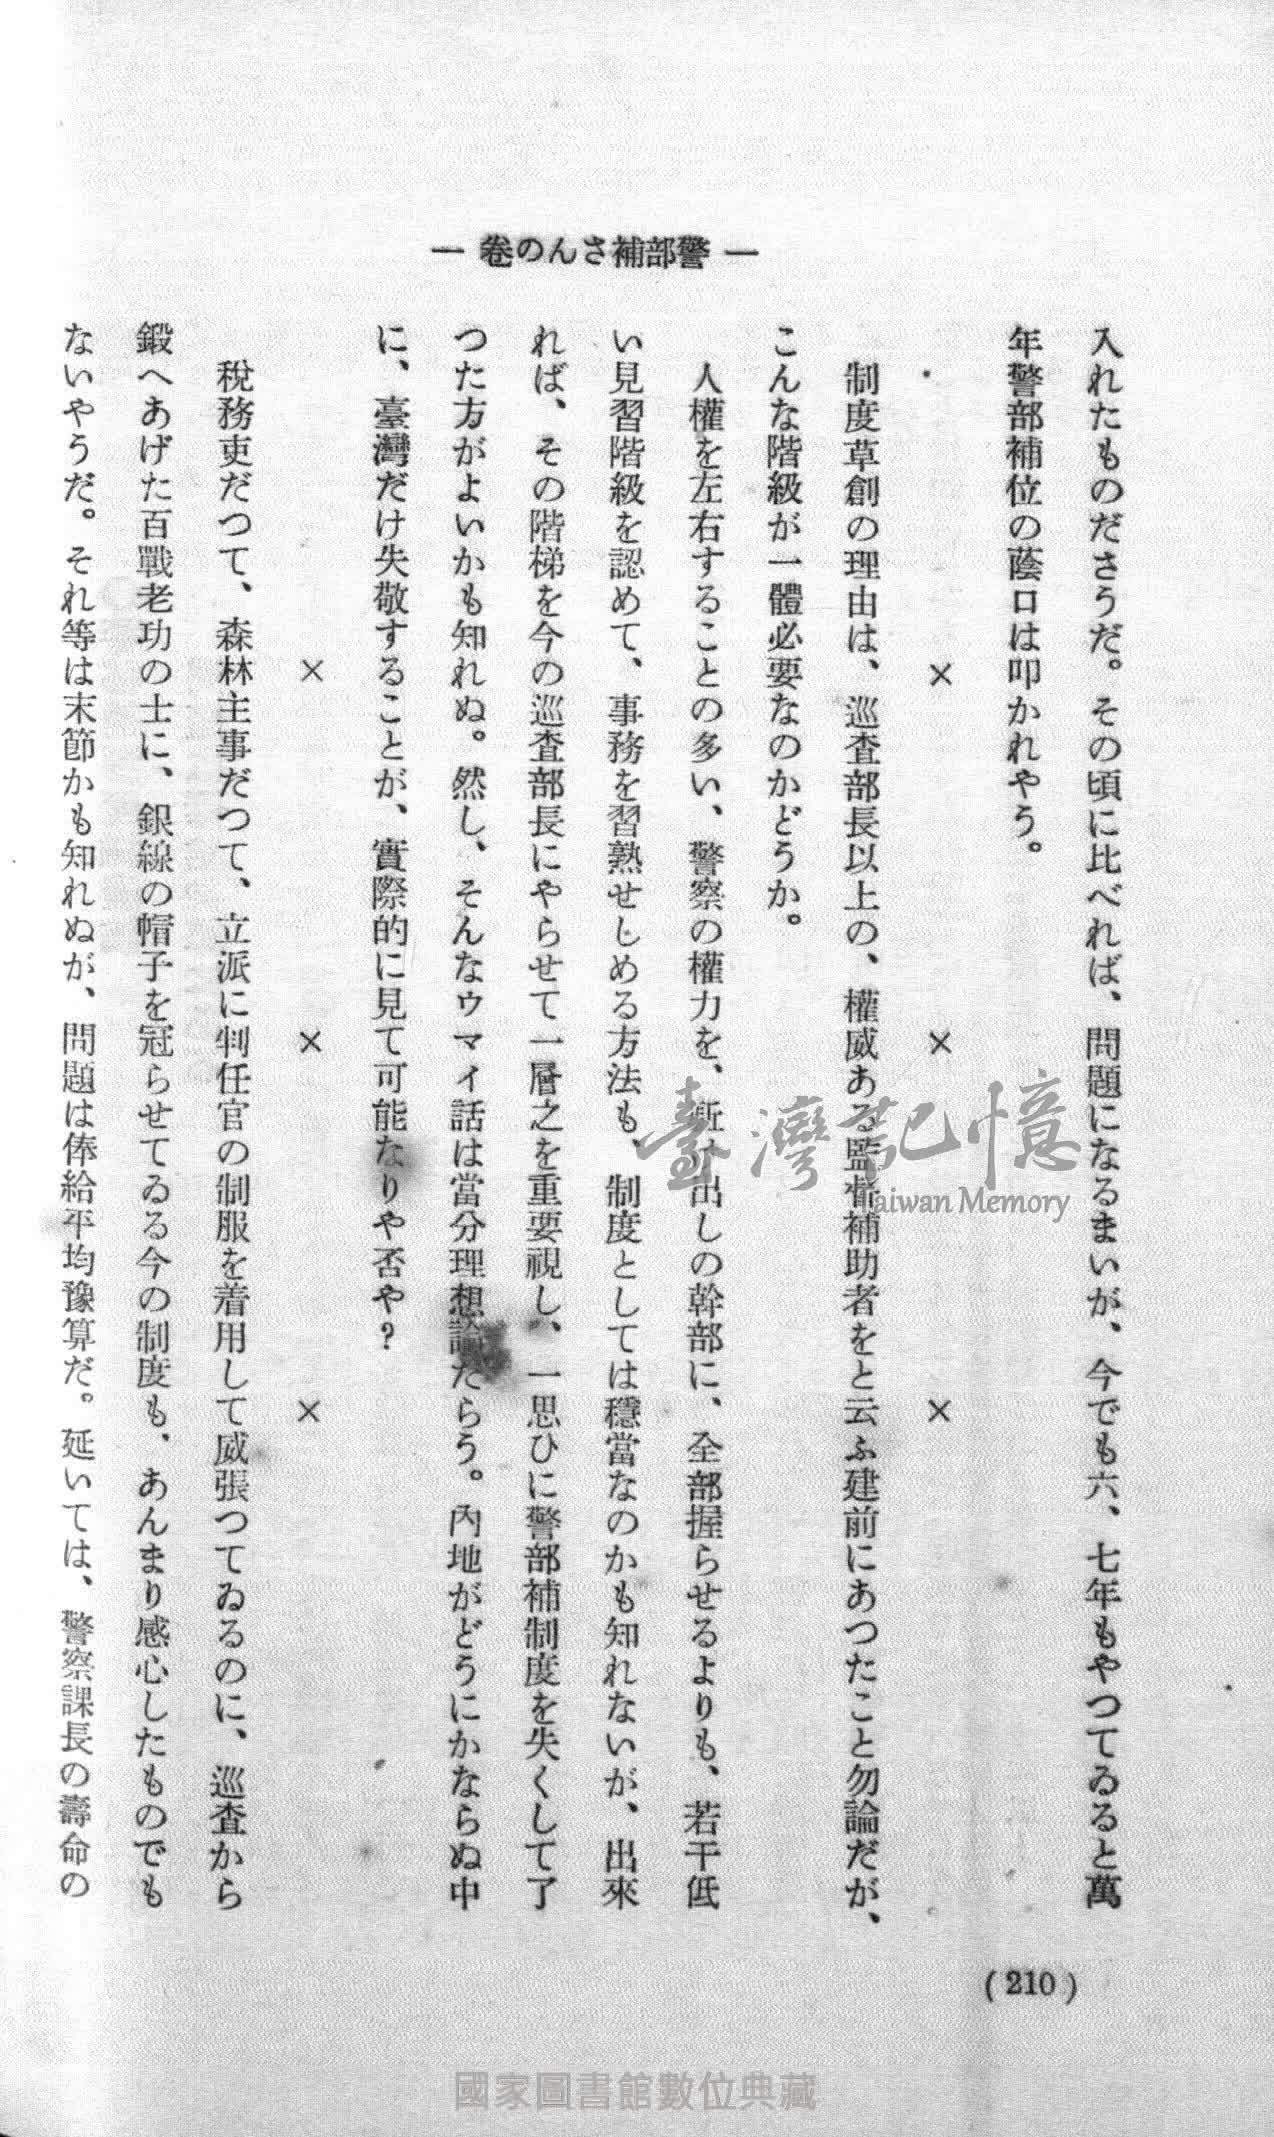 ― 警部補さんの卷 ―
入れたものださうだ。その頃に比べれば、問題になるまいが、今でも六、七年もやつてゐると萬
年警部補位の蔭口は叩かれやう。
× × ×
制度草創の理由は、巡査部長以上の、權威ある監督補助者をと云ふ建前にあつたこと勿論だが、
こんな階級が一體必要なのかどうか。
人權を左右することの多い、警察の權力を、新け出しの幹部に、全部握らせるよりも、若干低
い見習階級を認めて、事務を習熟せしめる方法も、制度としては穩當なのかも知れないが、出來
れば、その階梯を今の巡査部長にやらせて一層之を重要視し、一思ひに警部補制度を失くして了
つた方がよいかも知れぬ。然し、そんなウマイ話は當分理想論だらう。內地がどうにかならぬ中
に、臺灣だけ失敬することが、實際的に見て可能なりや否や？
× × ×
稅務吏だつて、森林主事だつて、立派に判任官の制服を着用して威張つてゐるのに、巡査から
鍛へあげた百戰老功の士に、銀線の帽子を冠らせてゐる今の制度も、あんまり感心したものでも
ないやうだ。それ等は末節かも知れぬが、問題は俸給平均豫算だ。延いては、警察課長の壽命の
(210)
臺灣記憶
Taiwan Memory
國家圖書館數位典藏